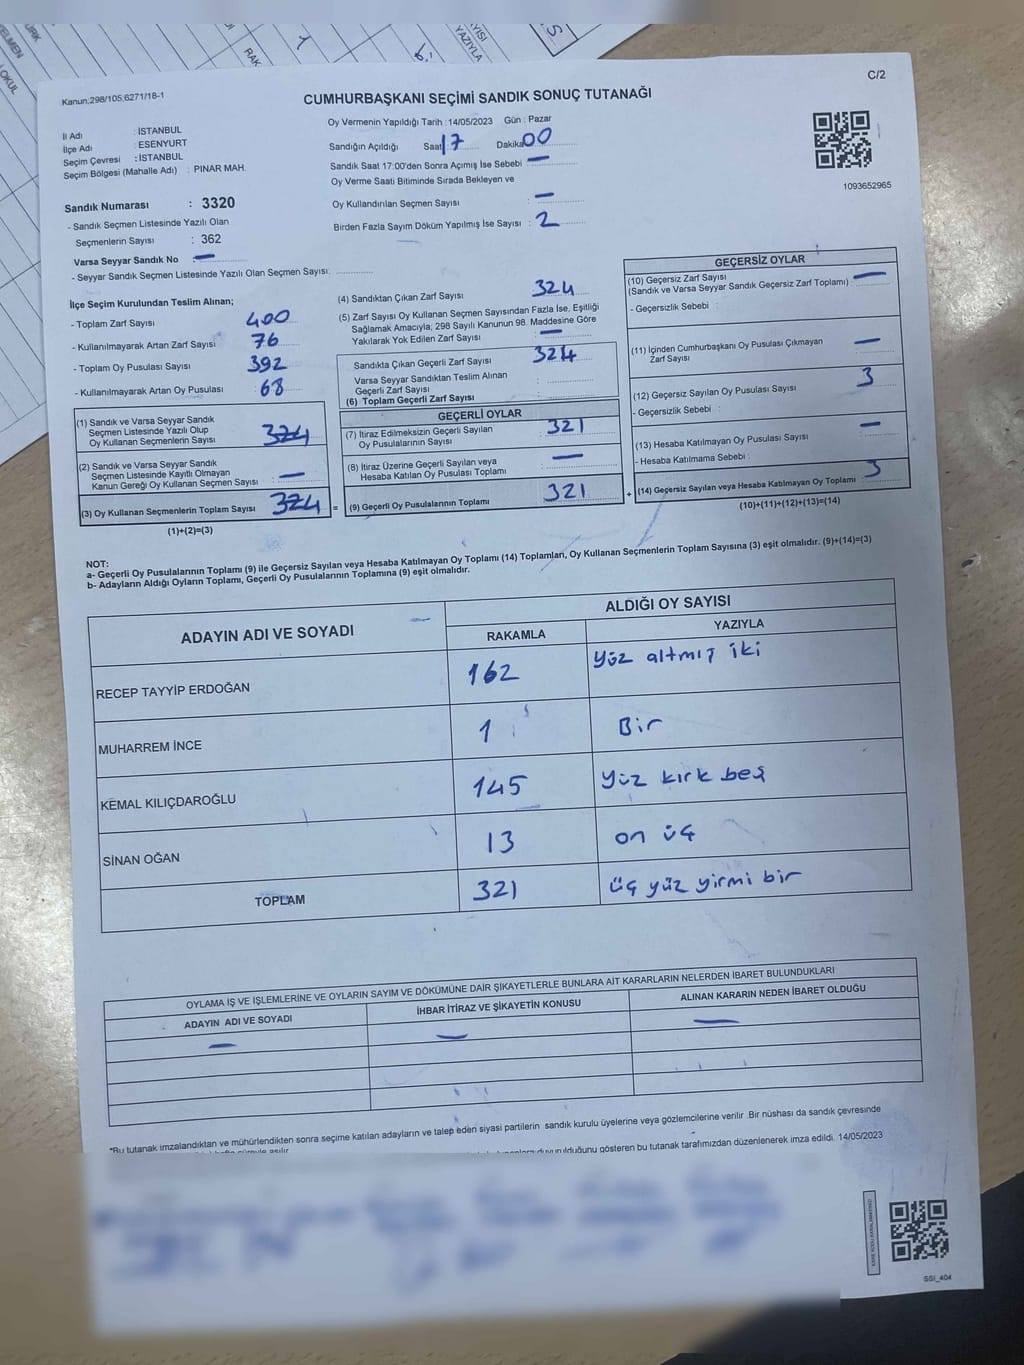 C/2
Kanun:298/105;6271/18-1
CUMHURBAŞKANI SEÇİMİ SANDIK SONUÇ TUTANAĞI
İl Adı : İSTANBUL
İlçe Adı : ESENYURT
Seçim Çevresi : İSTANBUL
Seçim Bölgesi (Mahalle Adı) : PINAR MAH.
Sandık Numarası : 3320
- Sandık Seçmen Listesinde Yazılı Olan
Seçmenlerin Sayısı : 362
Varsa Seyyar Sandık No : —
- Seyyar Sandık Seçmen Listesinde Yazılı Olan Seçmen Sayısı:
Oy Vermenin Yapıldığı Tarih : 14/05/2023 Gün : Pazar
Sandığın Açıldığı Saat 17 Dakika 00
Sandık Saat 17:00'den Sonra Açımış İse Sebebi : —
Oy Verme Saati Bitiminde Sırada Bekleyen ve
Oy Kullandırılan Seçmen Sayısı : —
Birden Fazla Sayım Döküm Yapılmış İse Sayısı : 2
1093652965
İlçe Seçim Kurulundan Teslim Alınan;
- Toplam Zarf Sayısı : 400
- Kullanılmayarak Artan Zarf Sayısı : 76
- Toplam Oy Pusulası Sayısı : 392
- Kullanılmayarak Artan Oy Pusulası : 68
(1) Sandık ve Varsa Seyyar Sandık
Seçmen Listesinde Yazılı Olup
Oy Kullanan Seçmenlerin Sayısı : 324
(2) Sandık ve Varsa Seyyar Sandık
Seçmen Listesinde Kayıtlı Olmayan
Kanun Gereği Oy Kullanan Seçmen Sayısı : —
(3) Oy Kullanan Seçmenlerin Toplam Sayısı : 324
(1)+(2)=(3)
(4) Sandıktan Çıkan Zarf Sayısı : 324
(5) Zarf Sayısı Oy Kullanan Seçmen Sayısından Fazla İse, Eşitliği
Sağlamak Amacıyla; 298 Sayılı Kanunun 98. Maddesine Göre
Yakılarak Yok Edilen Zarf Sayısı : —
Sandıkta Çıkan Geçerli Zarf Sayısı : 324
Varsa Seyyar Sandıktan Teslim Alınan
Geçerli Zarf Sayısı :
(6) Toplam Geçerli Zarf Sayısı :
GEÇERLİ OYLAR
(7) İtiraz Edilmeksizin Geçerli Sayılan
Oy Pusulalarının Sayısı : 321
(8) İtiraz Üzerine Geçerli Sayılan veya
Hesaba Katılan Oy Pusulası Toplamı : —
= (9) Geçerli Oy Pusulalarının Toplamı : 321
GEÇERSİZ OYLAR
(10) Geçersiz Zarf Sayısı
(Sandık ve Varsa Seyyar Sandık Geçersiz Zarf Toplamı) : —
- Geçersizlik Sebebi :
(11) İçinden Cumhurbaşkanı Oy Pusulası Çıkmayan
Zarf Sayısı : —
(12) Geçersiz Sayılan Oy Pusulası Sayısı : 3
- Geçersizlik Sebebi :
(13) Hesaba Katılmayan Oy Pusulası Sayısı : —
- Hesaba Katılmama Sebebi :
+ (14) Geçersiz Sayılan veya Hesaba Katılmayan Oy Toplamı : 3
(10)+(11)+(12)+(13)=(14)
NOT:
a- Geçerli Oy Pusulalarının Toplamı (9) ile Geçersiz Sayılan veya Hesaba Katılmayan Oy Toplamı (14) Toplamları, Oy Kullanan Seçmenlerin Toplam Sayısına (3) eşit olmalıdır. (9)+(14)=(3)
b- Adayların Aldığı Oyların Toplamı, Geçerli Oy Pusulalarının Toplamına (9) eşit olmalıdır.
ADAYIN ADI VE SOYADI ALDIĞI OY SAYISI
RAKAMLA YAZIYLA
RECEP TAYYİP ERDOĞAN 162 Yüz altmış iki
MUHARREM İNCE 1 Bir
KEMAL KILIÇDAROĞLU 145 Yüz kırk beş
SİNAN OĞAN 13 on üç
TOPLAM 321 üç yüz yirmi bir
OYLAMA İŞ VE İŞLEMLERİNE VE OYLARIN SAYIM VE DÖKÜMÜNE DAİR ŞİKAYETLERLE BUNLARA AİT KARARLARIN NELERDEN İBARET BULUNDUKLARI
ADAYIN ADI VE SOYADI İHBAR İTİRAZ VE ŞİKAYETİN KONUSU ALINAN KARARIN NEDEN İBARET OLDUĞU
— — —
*Bu tutanak imzalandıktan ve mühürlendikten sonra seçime katılan adayların ve talep eden siyasi partilerin sandık kurulu üyelerine veya gözlemcilerine verilir .Bir nüshası da sandık çevresinde
duyurulduğunu gösteren bu tutanak tarafımızdan düzenlenerek imza edildi. 14/05/2023
SSİ_404